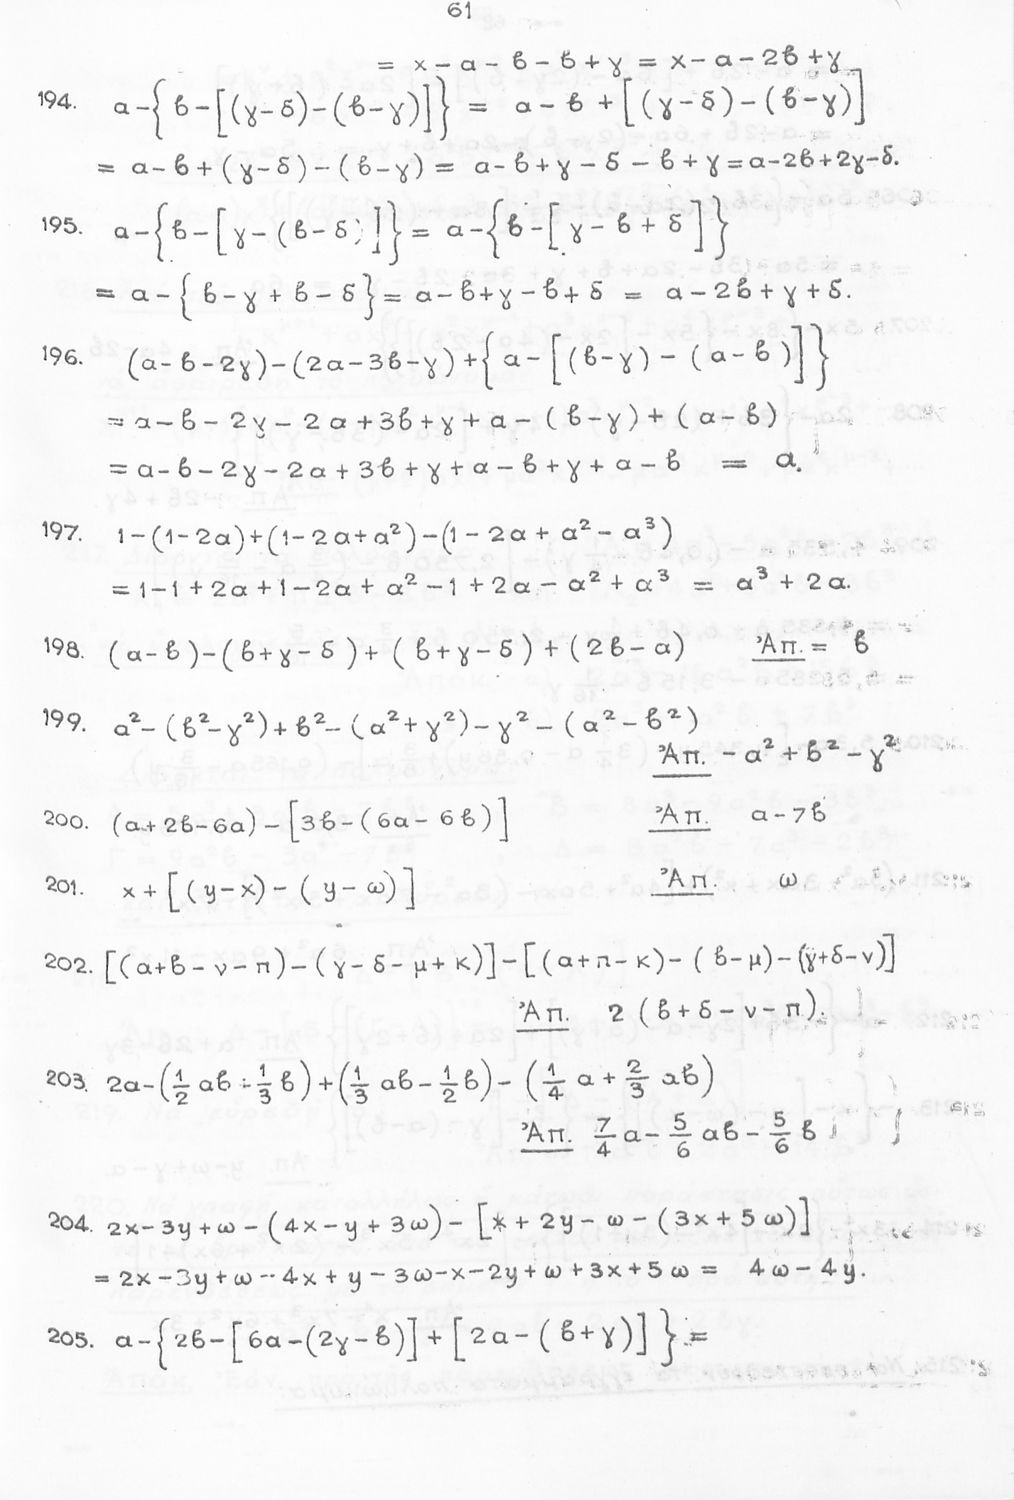 61
= x - α - β - β + γ = x - α - 2β + γ
194. α - {β - [(γ - δ) - (β - γ)]} = α - β + [(γ - δ) - (β - γ)]
= α - β + (γ - δ) - (β - γ) = α - β + γ - δ - β + γ = α - 2β + 2γ - δ.
195. α - {β - [γ - (β - δ)]} = α - {β - [γ - β + δ]}
= α - {β - γ + β - δ} = α - β + γ - β + δ = α - 2β + γ + δ.
196. (α - β - 2γ) - (2α - 3β - γ) + {α - [(β - γ) - (α - β)]}
= α - β - 2γ - 2α + 3β + γ + α - (β - γ) + (α - β)
= α - β - 2γ - 2α + 3β + γ + α - β + γ + α - β = α.
197. 1 - (1 - 2α) + (1 - 2α + α²) - (1 - 2α + α² - α³)
= 1 - 1 + 2α + 1 - 2α + α² - 1 + 2α - α² + α³ = α³ + 2α.
198. (α - β) - (β + γ - δ) + (β + γ - δ) + (2β - α) Ἀπ. = β
199. α² - (β² - γ²) + β² - (α² + γ²) - γ² - (α² - β²)
Ἀπ. - α² + β² - γ²
200. (α + 2β - 6α) - [3β - (6α - 6β)] Ἀπ. α - 7β
201. x + [(y - x) - (y - ω)] Ἀπ. ω
202. [(α + β - ν - π) - (γ - δ - μ + κ)] - [(α + π - κ) - (β - μ) - (γ + δ - ν)]
Ἀπ. 2 (β + δ - ν - π).
203. 2α - (1/2 αβ + 1/3 β) + (1/3 αβ - 1/2 β) - (1/4 α + 2/3 αβ)
Ἀπ. 7/4 α - 5/6 αβ - 5/6 β
204. 2x - 3y + ω - (4x - y + 3ω) - [x + 2y - ω - (3x + 5ω)]
= 2x - 3y + ω - 4x + y - 3ω - x - 2y + ω + 3x + 5ω = 4ω - 4y.
205. α - {2β - [6α - (2γ - β)] + [2α - (β + γ)]} =